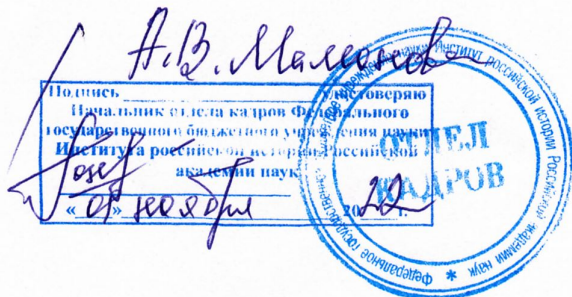 А.В. Мамонова
Подпись удостоверяю
Начальник отдела кадров Федерального
государственного бюджетного учреждения науки
Института российской истории Российской
академии наук
« 01 » ноября 2022 г.
Федеральное государственное бюджетное учреждение науки Институт российской истории Российской академии наук *
ОТДЕЛ
КАДРОВ